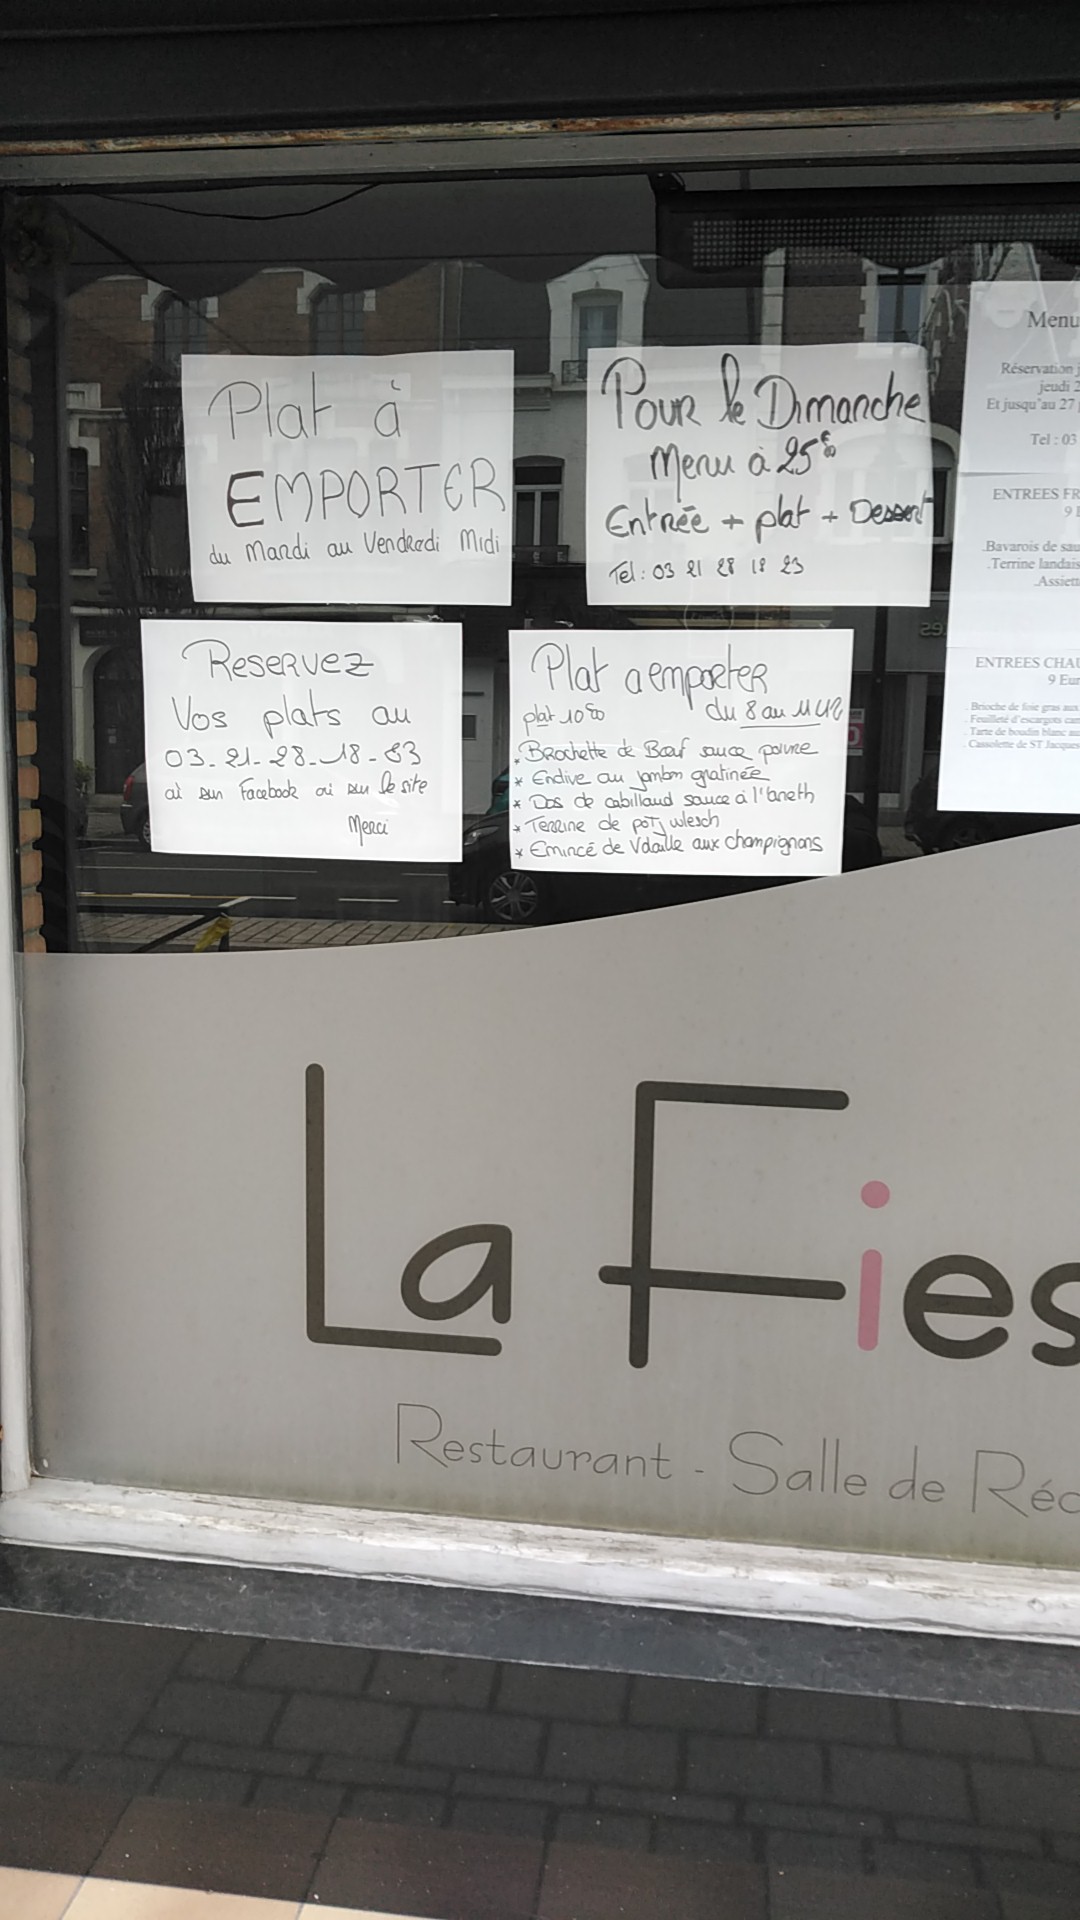 Plat à
EMPORTER
du Mardi au Vendredi Midi
Pour le Dimanche
Menu à 25€
Entrée + plat + Dessert
Tel: 03 21 28 18 23
Reservez
Vos plats au
03-21-28-18-83
où sur Facebook où sur le site
Merci
Plat a emporter
plat 10€ du 8 au 11
* Brochette de Bœuf sauce poivre
* Endive au jambon gratinée
* Dos de cabillaud sauce à l'aneth
* Terrine de potj wlesch
* Emincé de Volaille aux champignons
Menu
Réservation j
jeudi 2
Et jusqu'au 27
Tel : 03
ENTREES FR
9
.Bavarois de sau
.Terrine landais
.Assiett
ENTREES CHAU
9 Eur
. Brioche de foie gras aux
. Feuilleté d'escargots
. Tarte de boudin blanc au
. Cassolette de ST Jacques
La Fies
Restaurant - Salle de Réc